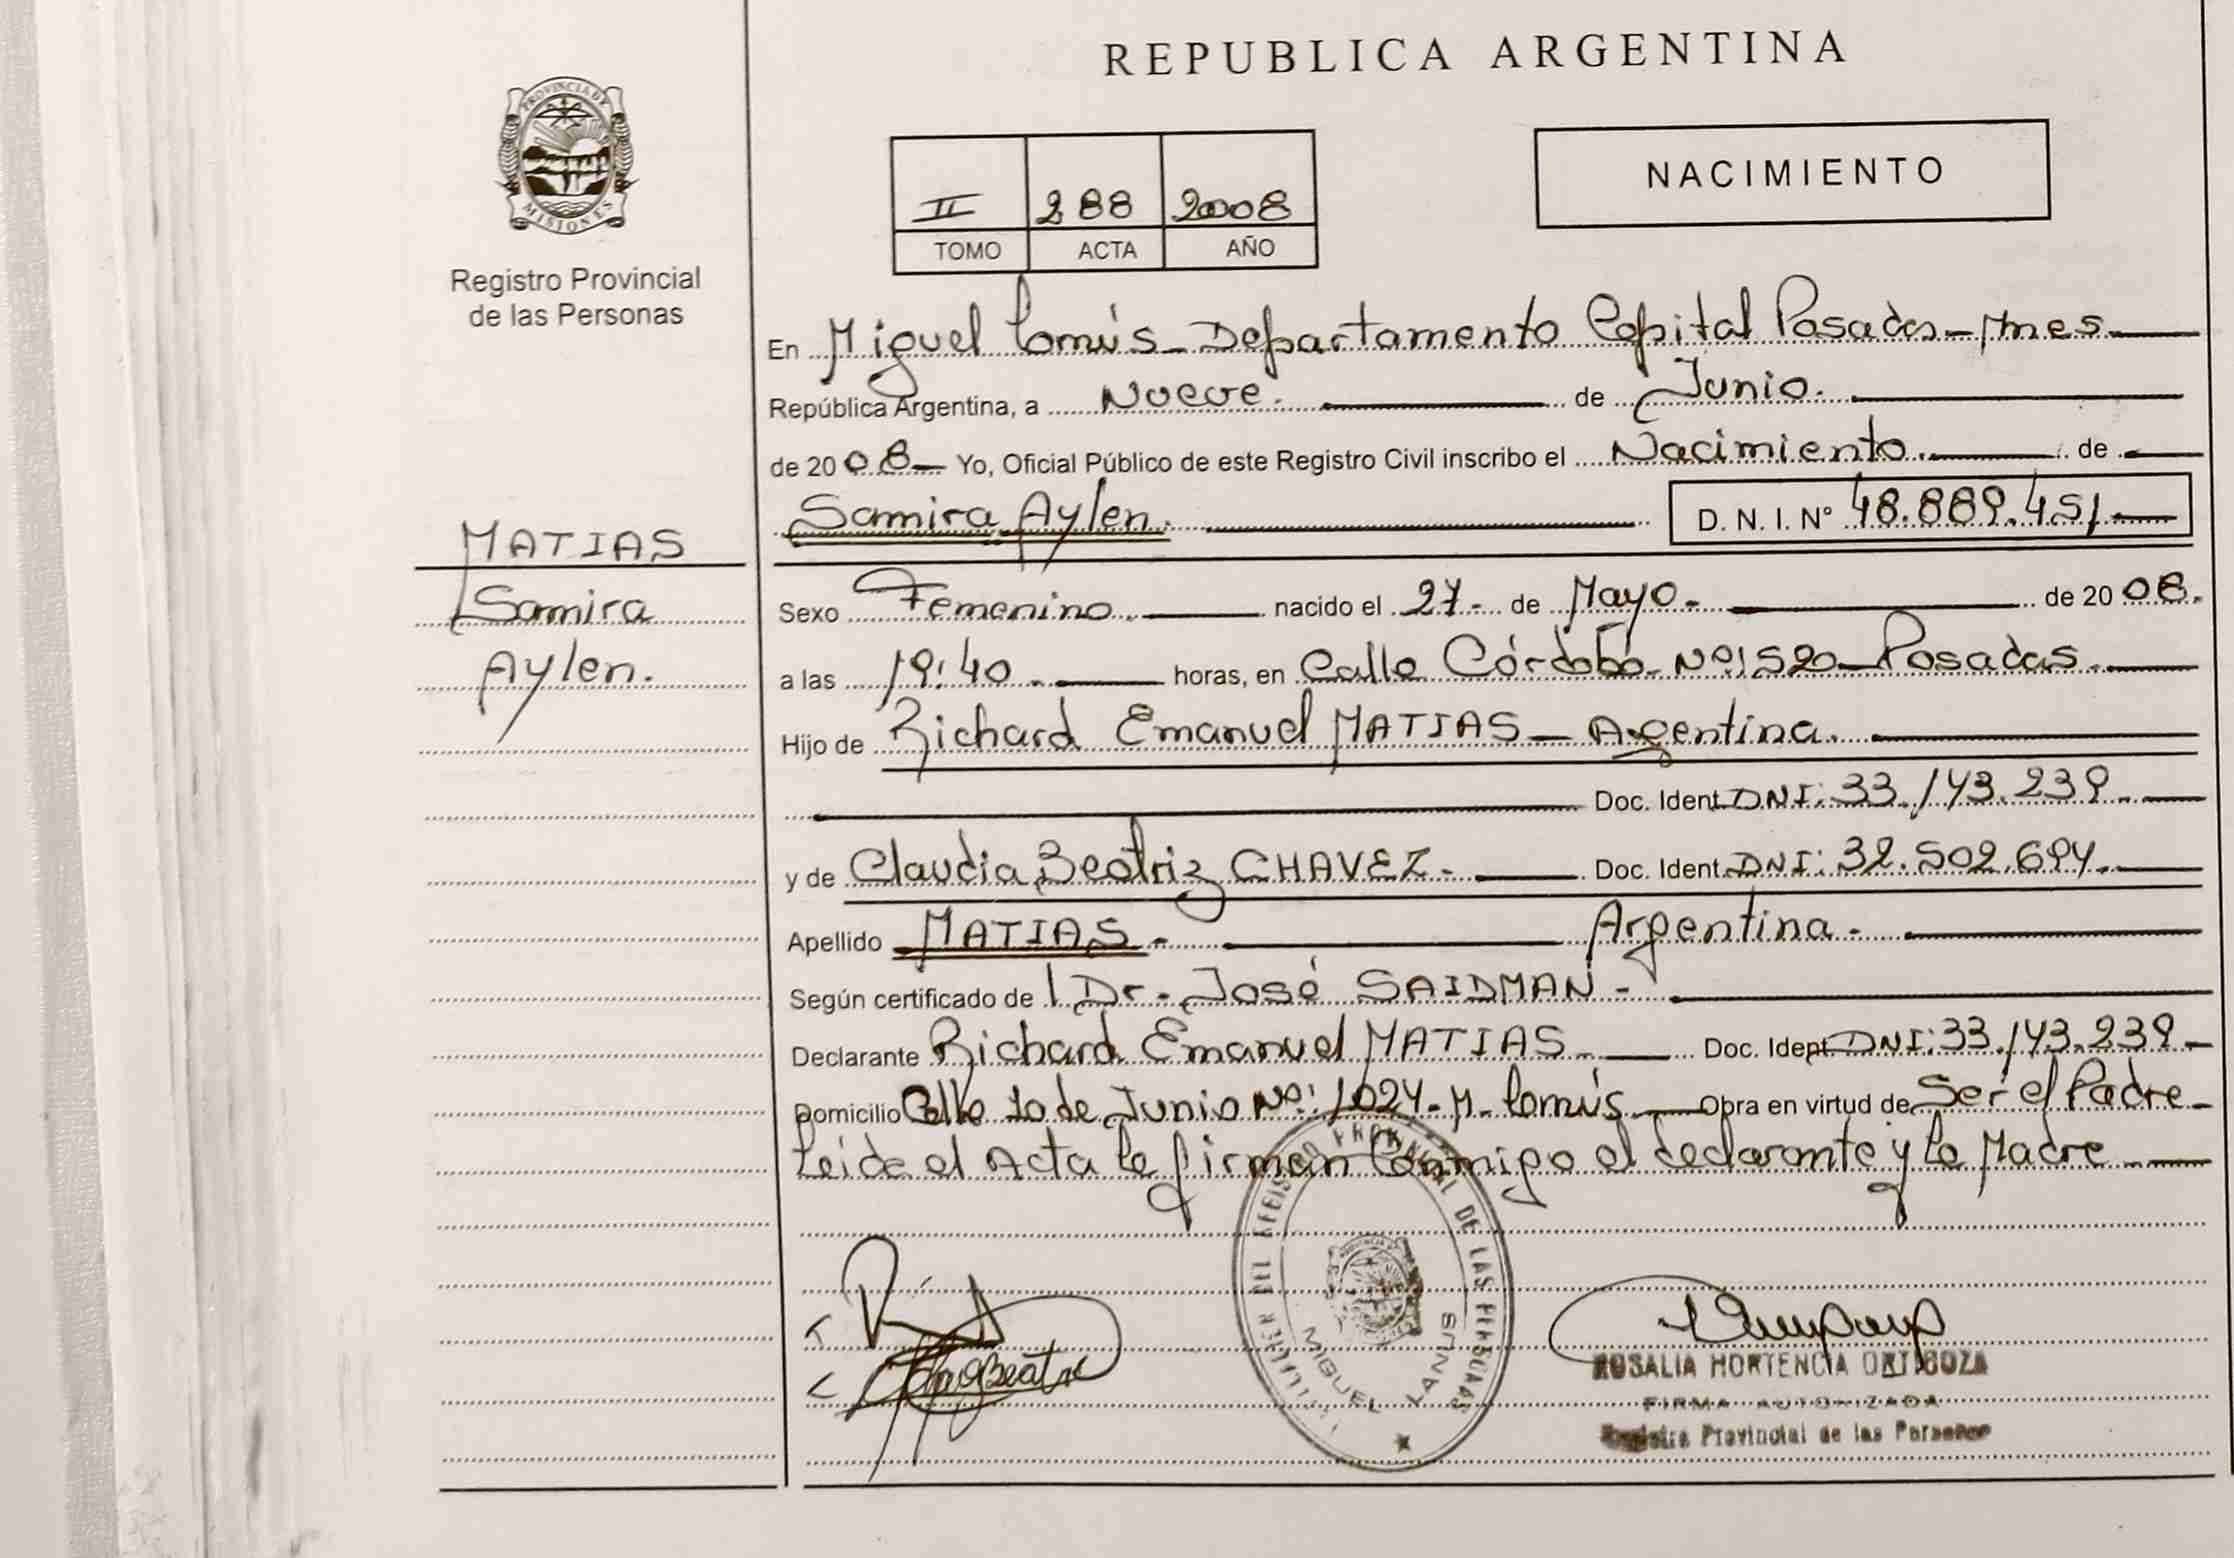 REPUBLICA ARGENTINA
PROVINCIA DE
MISIONES
Registro Provincial
de las Personas
II 288 2008
TOMO ACTA AÑO
NACIMIENTO
En Miguel Lanús - Departamento Capital Posadas - Mnes
República Argentina, a Nueve. de Junio.
de 2008 Yo, Oficial Público de este Registro Civil inscribo el Nacimiento. de
Samira Aylen. D. N. I. N° 48.889.451
MATIAS
Samira
Aylen.
Sexo Femenino. nacido el 27. de Mayo. de 2008.
a las 19:40. horas, en Calle Córdoba Nº 1520 Posadas.
Hijo de Richard Emanuel MATIAS - Argentina.
Doc. Ident. DNI: 33.143.239.
y de Claudia Beatriz CHAVEZ. Doc. Ident. DNI: 32.502.694.
Apellido MATIAS. Argentina.
Según certificado de Dr. José SAIDMAN.
Declarante Richard Emanuel MATIAS. Doc. Ident. DNI: 33.143.239
Domicilio Calle 10 de Junio Nº: 1024 - M. Lanús. Obra en virtud de Ser el Padre
Leída el Acta la firman conmigo el declarante y la Madre
DEL REGISTRO PROVINCIAL DE LAS PERSONAS
MIGUEL LANUS
ROSALIA HORTENCIA ORTIGOZA
FIRMA AUTORIZADA
Registro Provincial de las Personas